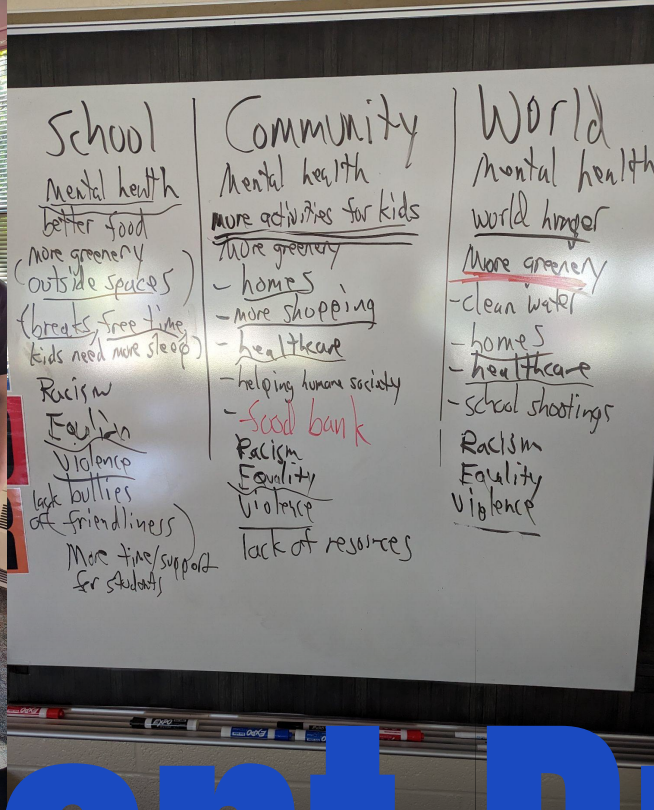 School
Mental health
better food
(more greenery
outside spaces)
(breaks, free time,
kids need more sleep)
Racism
Violence
bullies
lack
off friendliness)
More time/support
for students
Community
Mental health
more activities for kids
More greenery
- homes
- more shopping
- healthcare
- helping humane sociaty
- food bank
Racism
Equality
Violence
lack of resources
World
Mental health
world hunger
More greenery
- clean water
- homes
- healthcare
- school shootings
Racism
Equality
Violence
EXPO
EXPO